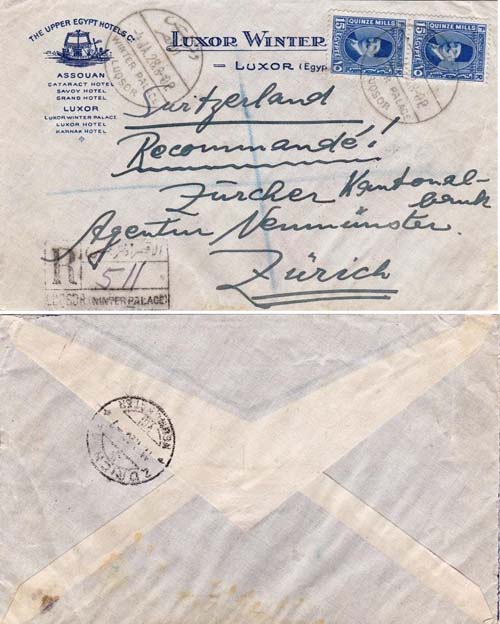 THE UPPER EGYPT HOTELS Co
ASSOUAN
CATARACT HOTEL
SAVOY HOTEL
GRAND HOTEL
LUXOR
LUXOR WINTER PALACE
LUXOR HOTEL
KARNAK HOTEL
LUXOR WINTER
LUXOR (Egyp
WINTER PALACE
LUQSOR
15 QUINZE MILLS 15
EGYPTE
15 QUINZE MILLS
EGYPT
PALACE
LUQSOR
Switzerland
Recommandé!
Zürcher Kantonal-
bank
Agentur Neumünster.
Zürich
R
511
LUQSOR (WINTER PALACE)
ZÜRICH